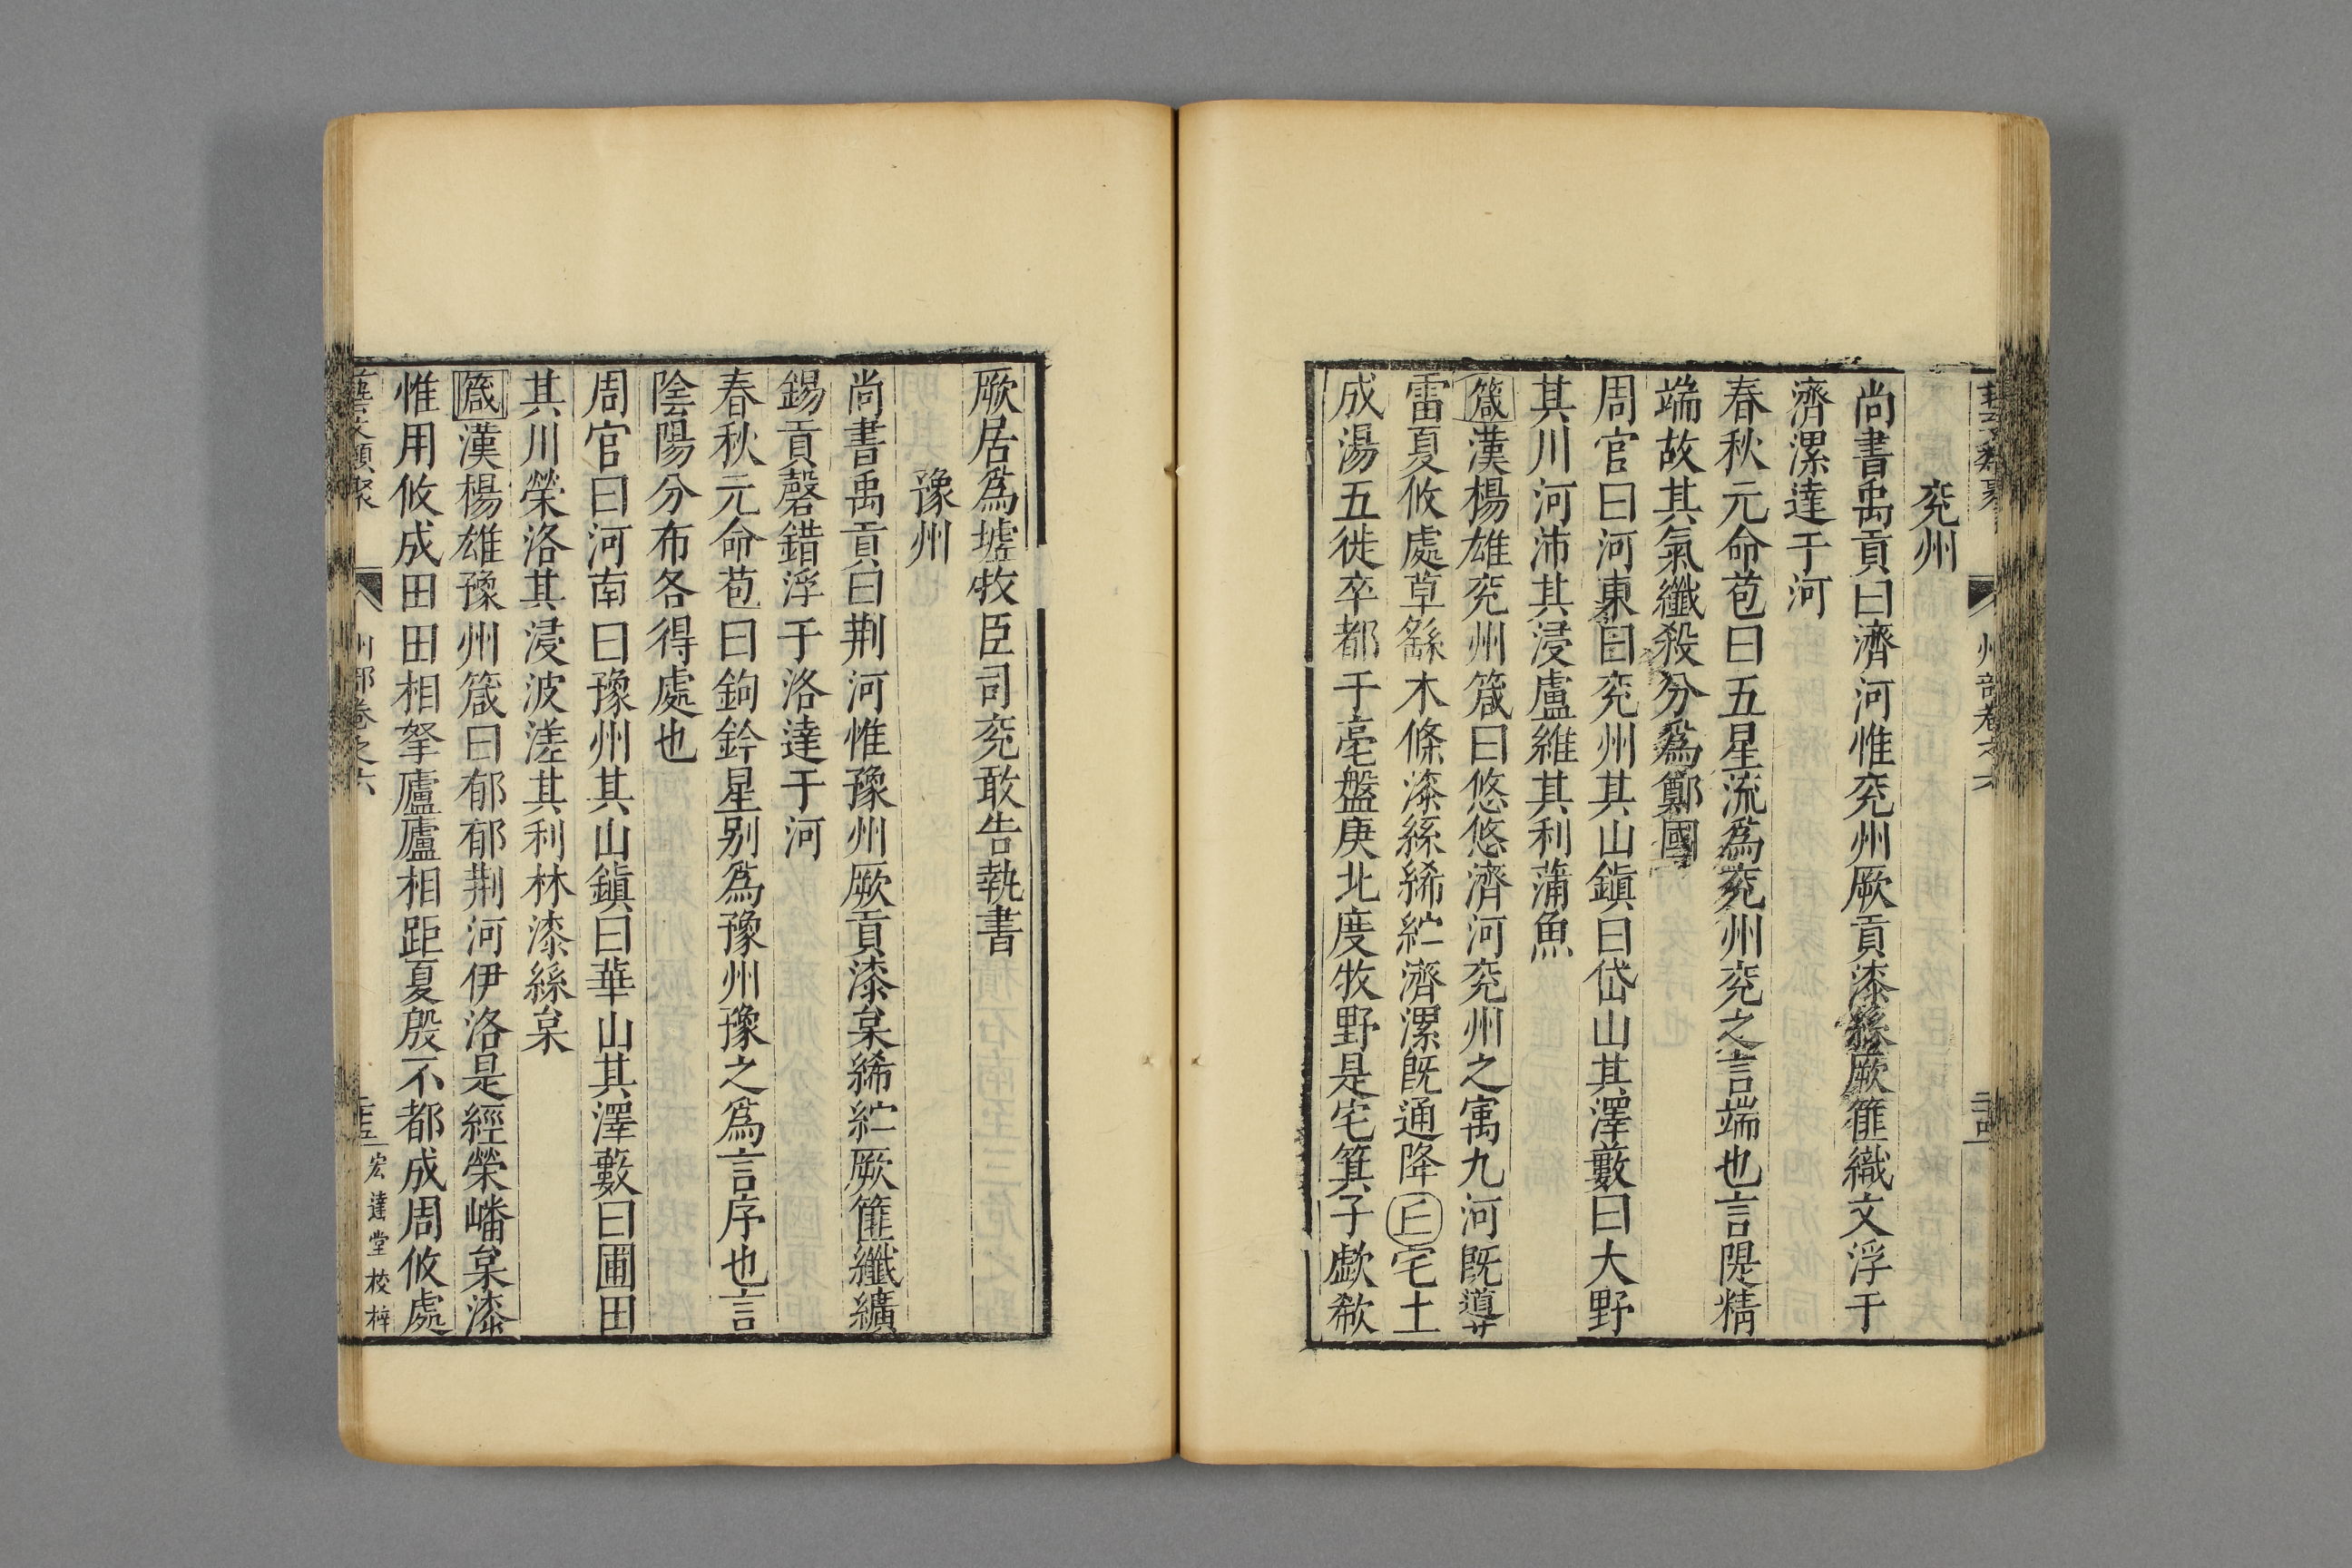 兖州
尚書禹貢曰濟河惟兖州厥貢漆絲厥篚織文浮于
濟漯達于河
春秋元命苞曰五星流爲兖州兖之言端也言隄精
端故其氣纖殺分爲鄭國
周官曰河東曰兖州其山鎮曰岱山其澤藪曰大野
其川河沛其浸盧維其利蒲魚
箴漢楊雄兖州箴曰悠悠濟河兖州之寓九河既導
雷夏攸處草繇木條漆絲絺紵濟漯既通降丘宅土
成湯五徙卒都于亳盤庚北度牧野是宅箕子歔欷
州部卷之六
厥居爲墟牧臣司兖敢告執書
豫州
尚書禹貢曰荆河惟豫州厥貢漆枲絺紵厥篚纖纊
錫貢磬錯浮于洛達于河
春秋元命苞曰鉤鈐星别爲豫州豫之爲言序也言
陰陽分布各得處也
周官曰河南曰豫州其山鎮曰華山其澤藪曰圃田
其川榮洛其浸波溠其利林漆絲枲
箴漢楊雄豫州箴曰郁郁荆河伊洛是經榮嶓枲漆
惟用攸成田田相拏廬廬相距夏殷不都成周攸處
藝文類聚
州部卷之六
宏達堂校梓